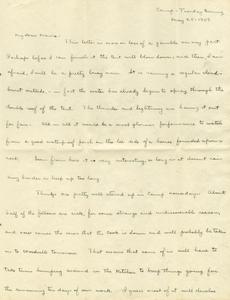 Camp - Tuesday Evening
May 25 - 1909
My dear Marie:
This letter is more or less of a gamble on my part.
Perhaps before I can finish it the tent will blow down, and then, I am
afraid, I will be a pretty busy man. It is raining a regular cloud-
burst outside - in fact the water has already begun to spray through the
double roof of the tent. The thunder and lightning are having it out
for fair. All in all it would be a most glorious performance to watch
from a good water-proof porch on the lee side of a house founded upon a
rock. Even from here it is very interesting, so long as it doesn't
blow harder or keep up too long.
Things are pretty well stirred up in camp nowadays. About
half of the fellows are sick, for some strange and undiscoverable reason,
and now comes the news that the cook is down and will probably be taken
in to tomorrow. That means that some of us will have to
take turns jumping around in the kitchen to keep things going for
the remaining ten days of our work. I guess most of it will devolve